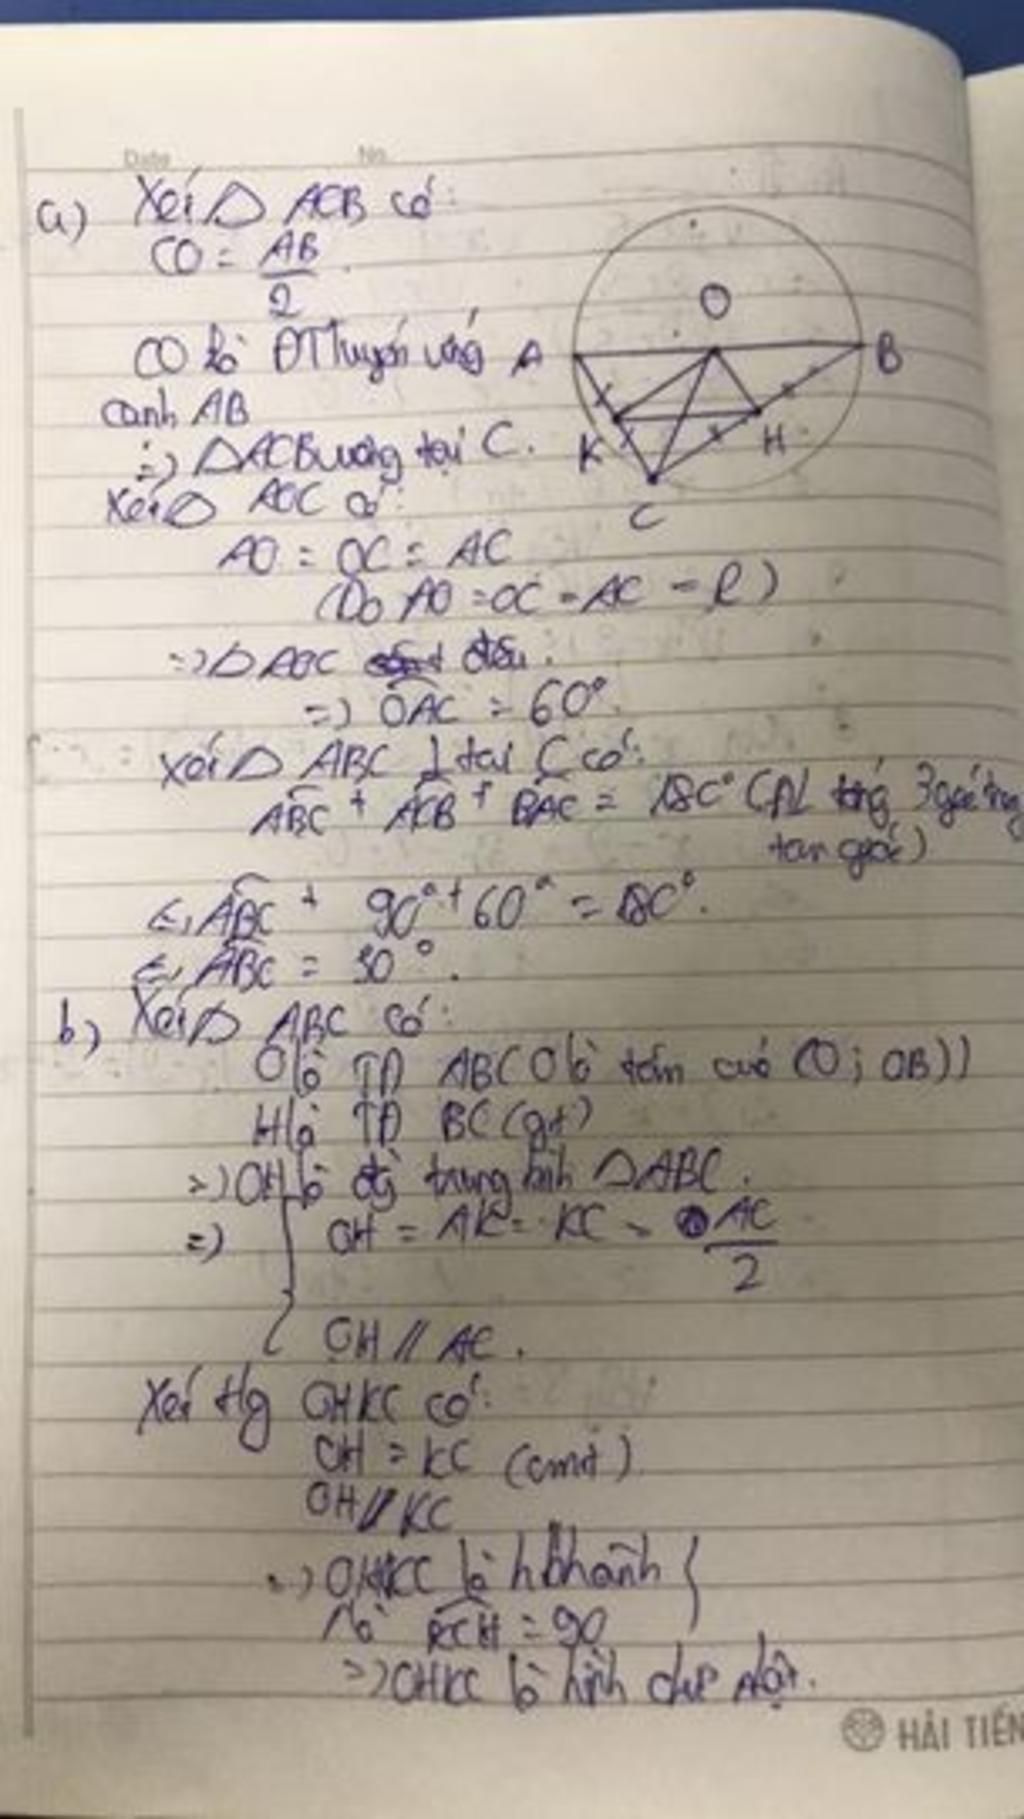 Date No.
a) Xét △ ACB có:
CO = AB/2
CO là ĐT tuyến ứng
cạnh AB
=> △ACB vuông tại C.
A O B K H C
Xét △ AOC có:
AO = OC = AC
(Do AO = OC = AC = R)
=> △ AOC đều.
=> OAC = 60°
Xét △ ABC ⊥ tại C có:
ABC + ACB + BAC = 180° (ĐL tổng 3 góc trong
tam giác)
<=> ABC + 90° + 60° = 180°.
<=> ABC = 30°.
b) Xét △ ABC có:
O là TĐ AB (O là tâm của (O; OB))
H là TĐ BC (gt)
=> OH là đg trung bình △ABC.
=> { OH = AK = KC = AC/2
OH // AC.
Xét Hg OHKC có:
OH = KC (cmt)
OH // KC
=> OHKC là h bhành }
Mà KCH = 90
=> OHKC là hình chữ nhật.
HẢI TIẾN